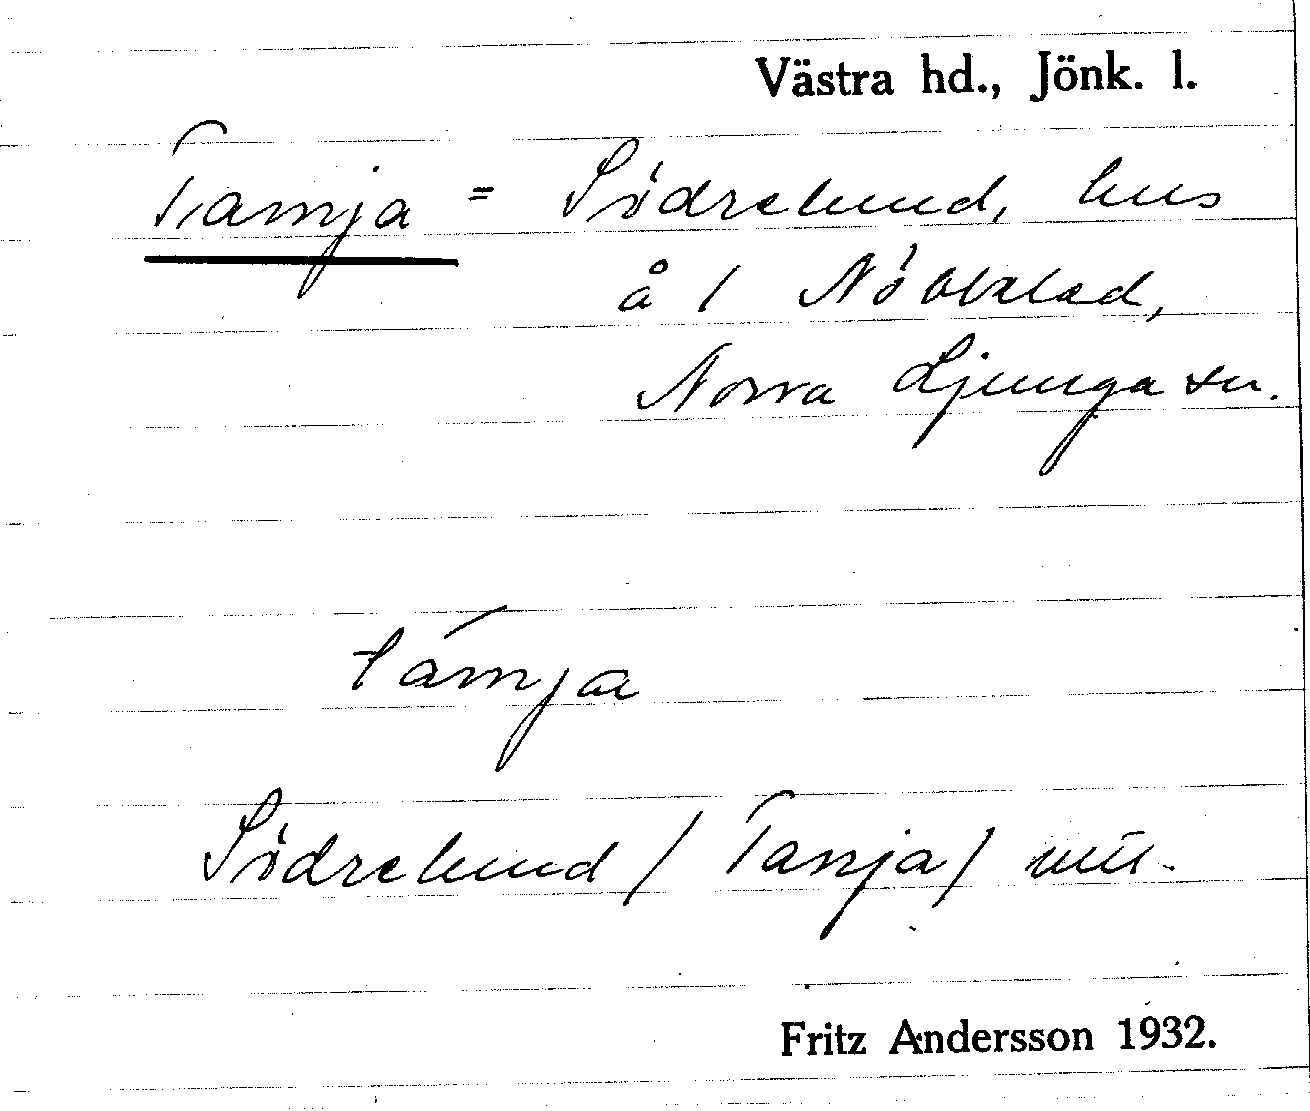 Västra hd., Jönk. l.
Tamja = Södrelund, hus
å 1 Nöbbeled,
Norra Ljunga sn.
támja
Södrelund / Tanja /
Fritz Andersson 1932.